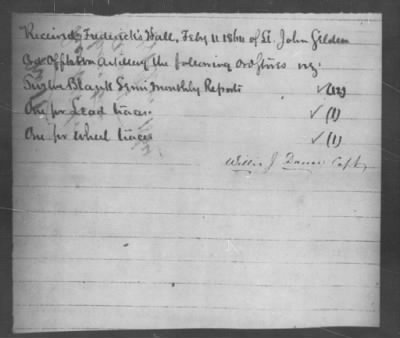 Received Frederick's Hall, Feby 11 1864 of Lt. John Gildem
Ord Off Artillery the following Ord Stores viz:
Twelve Blank Semi Monthly Reports ✓ (12)
One pr Lead traces ✓ (1)
One pr Wheel traces ✓ (1)
Willis J Dance Capt